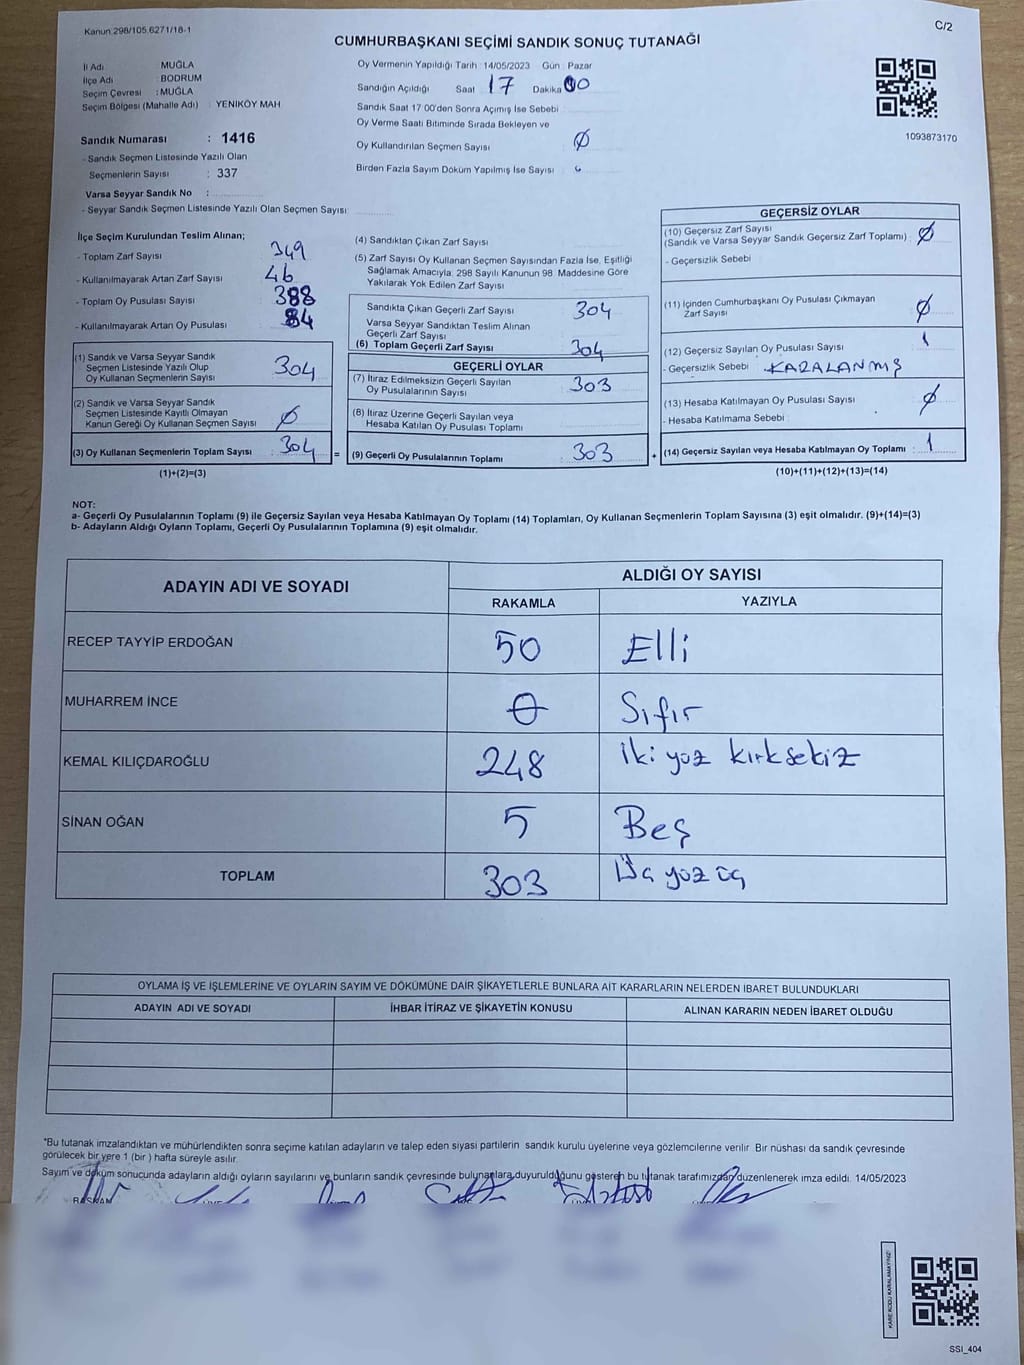 Kanun:298/105,6271/18-1
C/2
CUMHURBAŞKANI SEÇİMİ SANDIK SONUÇ TUTANAĞI
İl Adı : MUĞLA
İlçe Adı : BODRUM
Seçim Çevresi : MUĞLA
Seçim Bölgesi (Mahalle Adı) : YENİKÖY MAH
Sandık Numarası : 1416
- Sandık Seçmen Listesinde Yazılı Olan
Seçmenlerin Sayısı : 337
Varsa Seyyar Sandık No :
- Seyyar Sandık Seçmen Listesinde Yazılı Olan Seçmen Sayısı
Oy Vermenin Yapıldığı Tarih : 14/05/2023 Gün : Pazar
Sandığın Açıldığı Saat 17 Dakika 00
Sandık Saat 17 00'den Sonra Açımış İse Sebebi
Oy Verme Saati Bitiminde Sırada Bekleyen ve
Oy Kullandırılan Seçmen Sayısı Ø
Birden Fazla Sayım Döküm Yapılmış İse Sayısı
1093873170
İlçe Seçim Kurulundan Teslim Alınan;
- Toplam Zarf Sayısı 349
- Kullanılmayarak Artan Zarf Sayısı 46
- Toplam Oy Pusulası Sayısı 388
- Kullanılmayarak Artan Oy Pusulası 84
(1) Sandık ve Varsa Seyyar Sandık
Seçmen Listesinde Yazılı Olup
Oy Kullanan Seçmenlerin Sayısı 304
(2) Sandık ve Varsa Seyyar Sandık
Seçmen Listesinde Kayıtlı Olmayan
Kanun Gereği Oy Kullanan Seçmen Sayısı Ø
(3) Oy Kullanan Seçmenlerin Toplam Sayısı 304 =
(1)+(2)=(3)
(4) Sandıktan Çıkan Zarf Sayısı
(5) Zarf Sayısı Oy Kullanan Seçmen Sayısından Fazla İse, Eşitliği
Sağlamak Amacıyla: 298 Sayılı Kanunun 98. Maddesine Göre
Yakılarak Yok Edilen Zarf Sayısı
Sandıkta Çıkan Geçerli Zarf Sayısı 304
Varsa Seyyar Sandıktan Teslim Alınan
Geçerli Zarf Sayısı
(6) Toplam Geçerli Zarf Sayısı 304
GEÇERLİ OYLAR
(7) İtiraz Edilmeksizin Geçerli Sayılan
Oy Pusulalarının Sayısı 303
(8) İtiraz Üzerine Geçerli Sayılan veya
Hesaba Katılan Oy Pusulası Toplamı
(9) Geçerli Oy Pusulalarının Toplamı 303 +
GEÇERSİZ OYLAR
(10) Geçersiz Zarf Sayısı
(Sandık ve Varsa Seyyar Sandık Geçersiz Zarf Toplamı) : Ø
- Geçersizlik Sebebi
(11) İçinden Cumhurbaşkanı Oy Pusulası Çıkmayan
Zarf Sayısı Ø
(12) Geçersiz Sayılan Oy Pusulası Sayısı 1
- Geçersizlik Sebebi KARALANMŞ
(13) Hesaba Katılmayan Oy Pusulası Sayısı Ø
- Hesaba Katılmama Sebebi
(14) Geçersiz Sayılan veya Hesaba Katılmayan Oy Toplamı : 1
(10)+(11)+(12)+(13)=(14)
NOT:
a- Geçerli Oy Pusulalarının Toplamı (9) ile Geçersiz Sayılan veya Hesaba Katılmayan Oy Toplamı (14) Toplamları, Oy Kullanan Seçmenlerin Toplam Sayısına (3) eşit olmalıdır. (9)+(14)=(3)
b- Adayların Aldığı Oyların Toplamı, Geçerli Oy Pusulalarının Toplamına (9) eşit olmalıdır.
ADAYIN ADI VE SOYADI
ALDIĞI OY SAYISI
RAKAMLA YAZIYLA
RECEP TAYYİP ERDOĞAN 50 Elli
MUHARREM İNCE 0 Sıfır
KEMAL KILIÇDAROĞLU 248 İki yüz kırk sekiz
SİNAN OĞAN 5 Beş
TOPLAM 303 Üç yüz üç
OYLAMA İŞ VE İŞLEMLERİNE VE OYLARIN SAYIM VE DÖKÜMÜNE DAİR ŞİKAYETLERLE BUNLARA AİT KARARLARIN NELERDEN İBARET BULUNDUKLARI
ADAYIN ADI VE SOYADI İHBAR İTİRAZ VE ŞİKAYETİN KONUSU ALINAN KARARIN NEDEN İBARET OLDUĞU
*Bu tutanak imzalandıktan ve mühürlendikten sonra seçime katılan adayların ve talep eden siyasi partilerin sandık kurulu üyelerine veya gözlemcilerine verilir. Bir nüshası da sandık çevresinde
görülecek bir yere 1 (bir ) hafta süreyle asılır.
Sayım ve döküm sonucunda adayların aldığı oyların sayılarını ve bunların sandık çevresinde bulunanlara duyurulduğunu gösteren bu tutanak tarafımızdan düzenlenerek imza edildi. 14/05/2023
BAŞKAN
KARE KODU KARALAMAYINIZ!
SSI_404